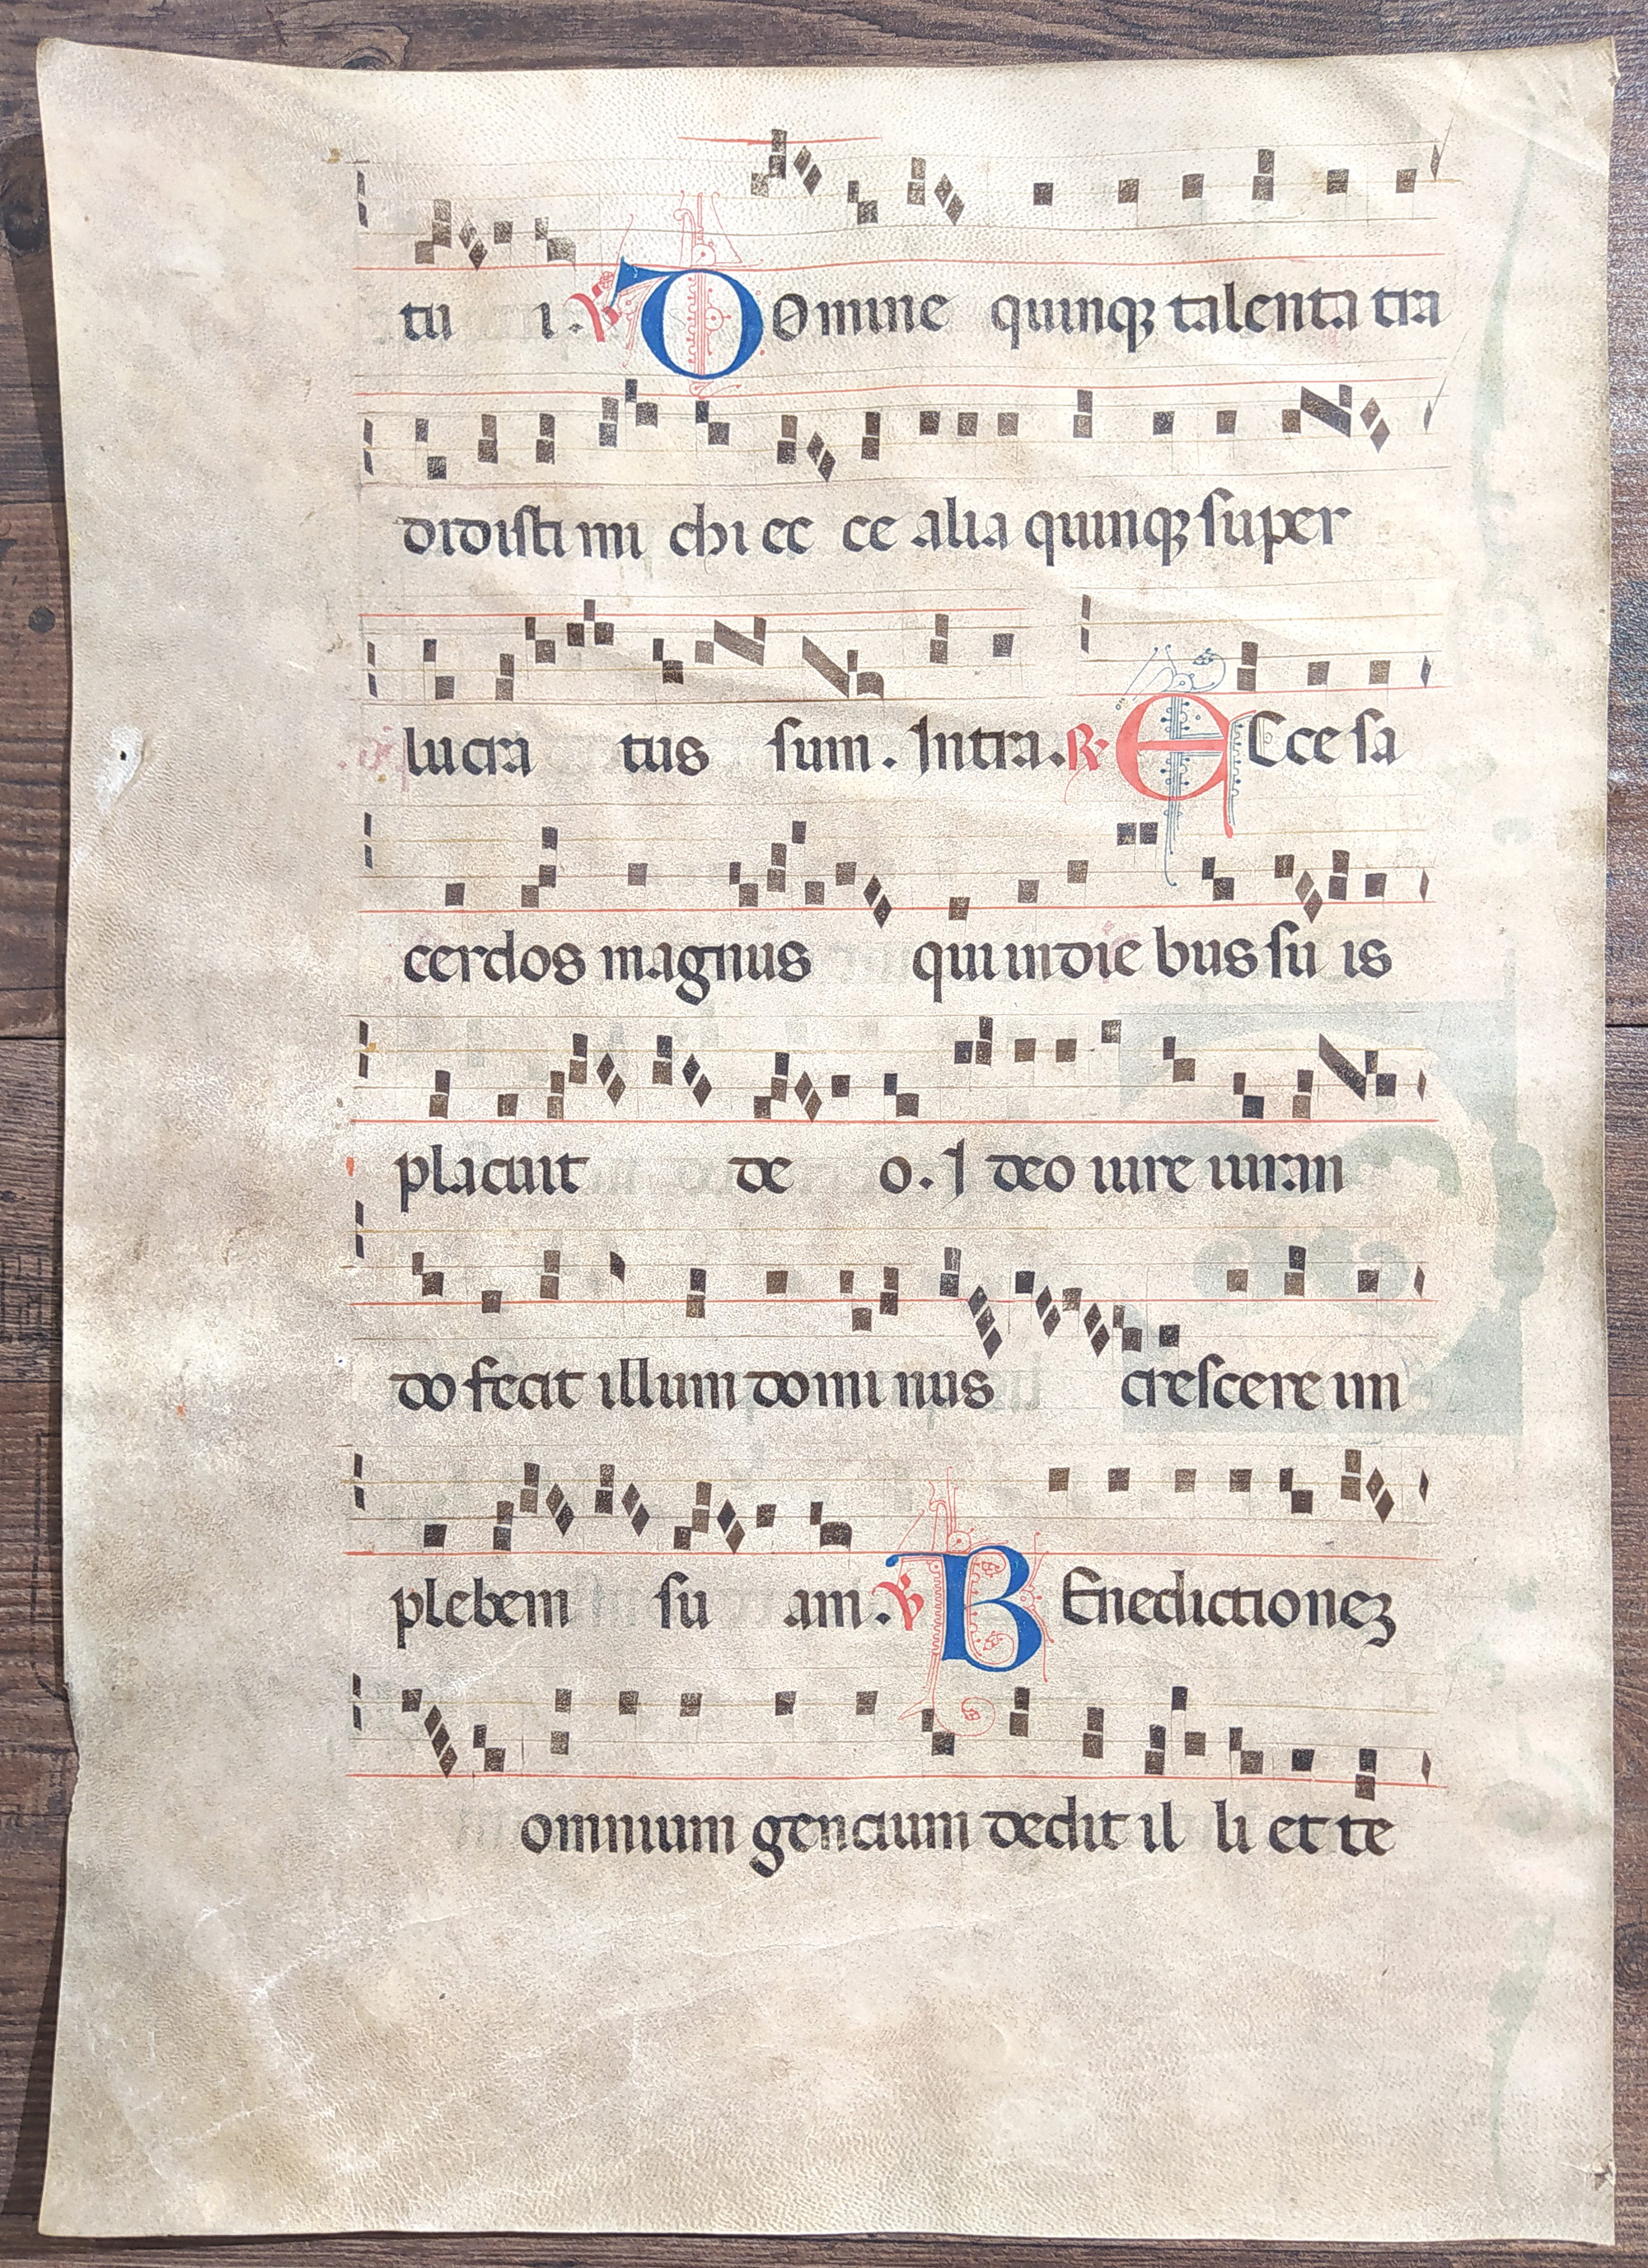 tu i. ℣ DOmine quinqꝫ talenta tra
didisti mi chi ec ce alia quinqꝫ super
lucra tus sum. Intra. ℟ EEcce sa
cerdos magnus qui in die bus su is
placuit de o. I deo iure iuran
do fecit illum domi nus crescere in
plebem su am. ℣ BEnedictioneꝫ
omnium gencium dedit il li et te